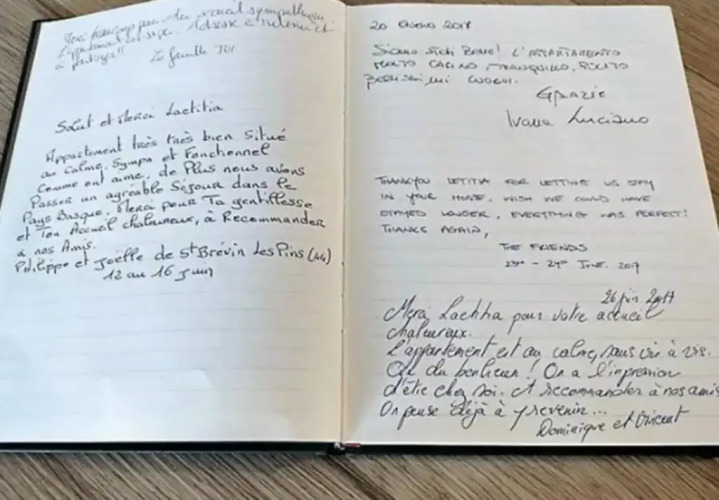 Merci beaucoup pour
sympathique
L'appartement
Adresse à retenir et
à partager!!
La famille
Salut et Merci Laetitia
Appartement très très bien situé
au calme, Sympa et Fonctionnel
Comme ont aime, de Plus nous avons
Passer un agréable Séjour dans le
Pays Basque, Merci pour Ta gentillesse
et Ton Accueil chaleureux, à Recommander
à nos Amis.
Philippe et Joëlle de St Brévin Les Pins (44)
12 au 16 juin
20
Siamo stati bene! L'appartamento
molto carino, tranquillo,
bellissimi luoghi.
Grazie
Ivana Luciano
THANKYOU LETITIA FOR LETTING US STAY
IN YOUR HOUSE. WISH WE COULD HAVE
STAYED LONGER, EVERYTHING WAS PERFECT!
THANKS AGAIN,
THE FRIENDS
JUNE. 2017
26 juin 2017
Merci Laetitia pour votre accueil
chaleureux.
L'appartement est au calme, sans vis à vis.
Que du bonheur! On a l'impression
d'être chez soi. A recommander à nos amis
On pense déjà à y revenir...
Dominique et Vincent